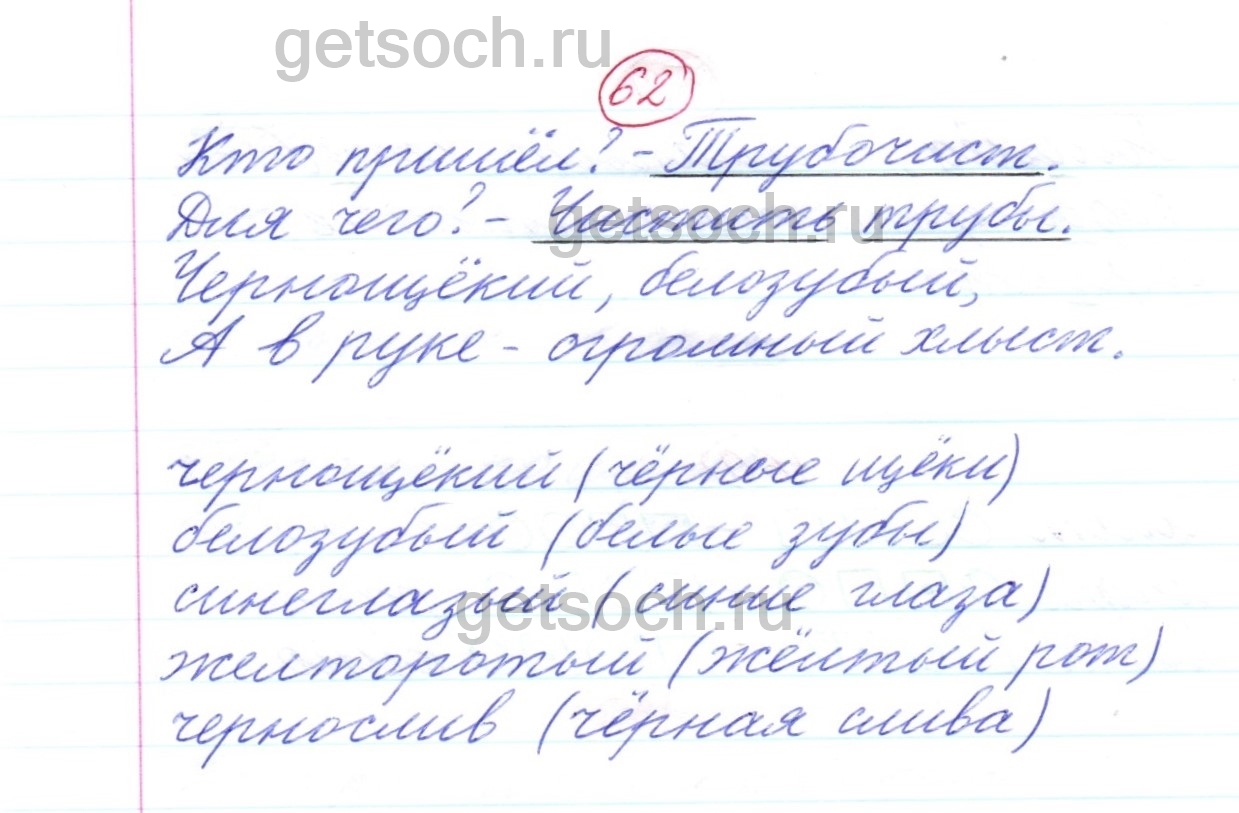 getsoch.ru
62
Кто пришёл? - Трубочист.
Для чего? - Чистить трубы.
getsoch.ru
Чернощёкий, белозубый,
А в руке - огромный хлыст.
чернощёкий (чёрные щёки)
белозубый (белые зубы)
синеглазый (синие глаза)
getsoch.ru
желторотый (жёлтый рот)
чернослив (чёрная слива)